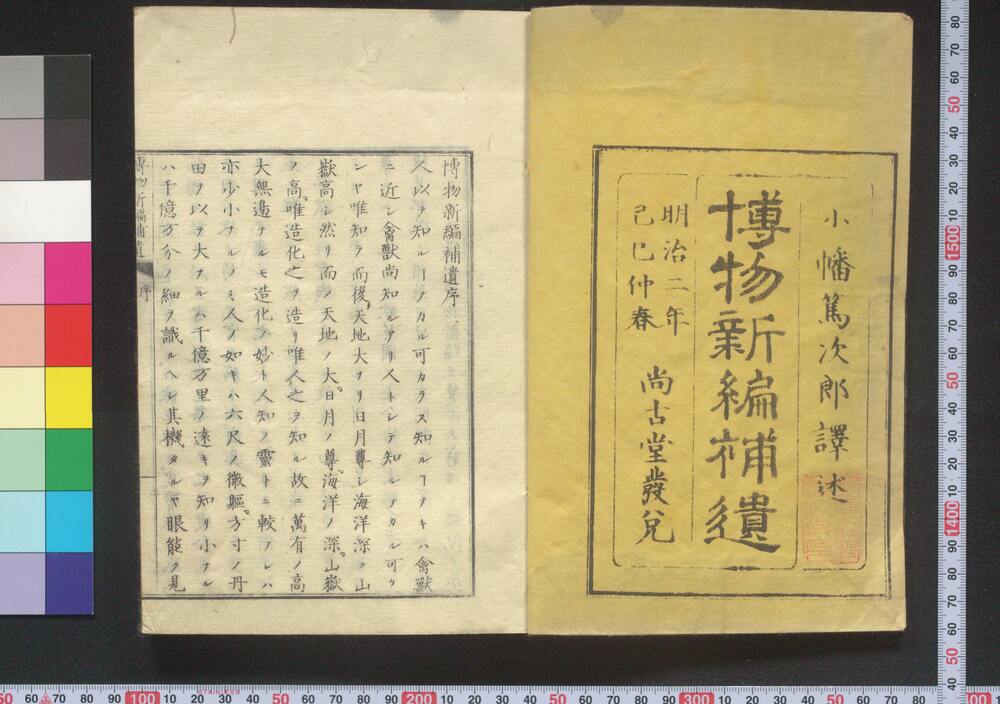 小幡篤次郎譯述
博物新編補遺
明治二年
己巳仲春
尚古堂發兌
博物新編補遺序
人以テ知ルヿナカル可カラス知ルヿナキハ禽獣
ニ近シ禽獣尚知ルアリ人トシテ知ルノナカル可ケ
ンヤ唯知テ而後天地大ナリ日月尊シ海洋深ク山
嶽高シ然リ而ノ天地ノ大日月ノ尊海洋ノ深山嶽
ノ高唯造化之ヲ造リ唯人之ヲ知ル故ニ萬有ノ高
大無邊ナルモ造化ノ妙ト人知ノ靈トニ較フレハ
亦少小ナルノミ人ノ如キハ六尺ノ微軀方寸ノ丹
田ヲ以テ大ナルハ千億万里ノ遠キヲ知リ小ナル
ハ千億万分ノ細ヲ識ルヘシ其機タルヤ眼能ク見
博物新編補遺
序
STAINLESS